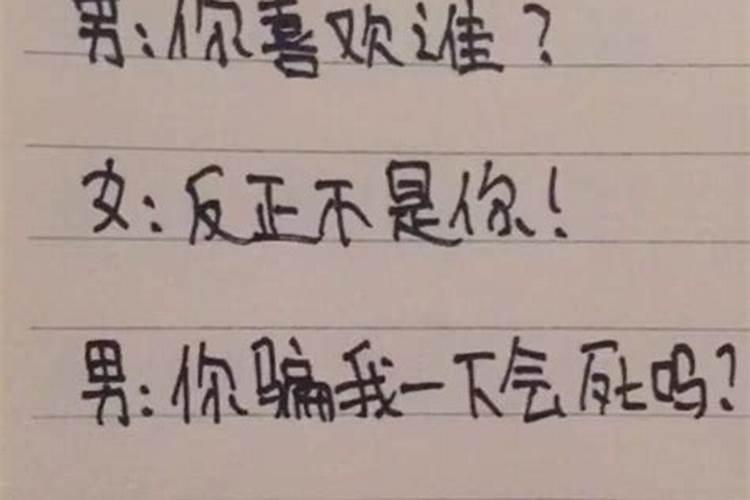 男:你喜欢谁?
女:反正不是你!
男:你骗我一下会死吗?